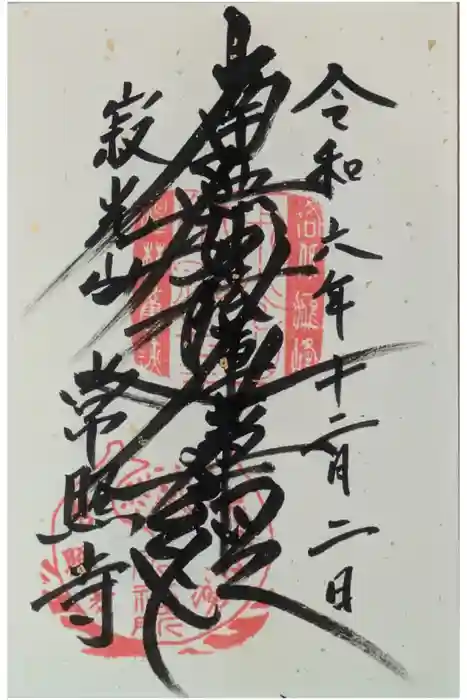 令和六年十二月二日
南無妙法蓮華経
寂光山
常照寺
洛北鷹峰